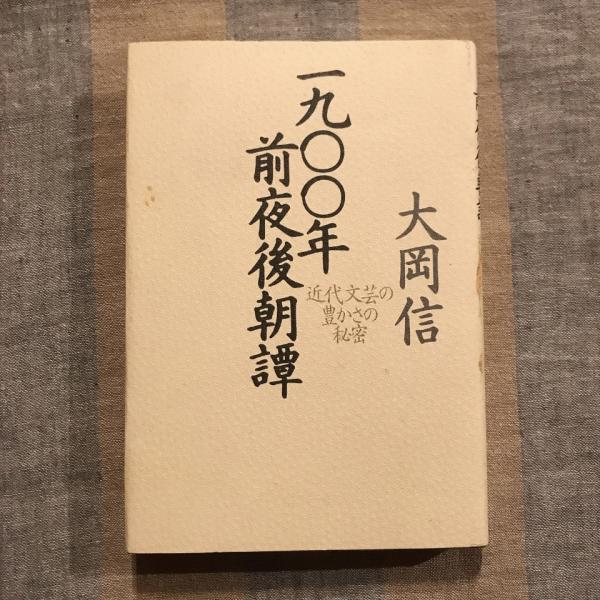 大岡信
一九〇〇年
前夜後朝譚
近代文芸の
豊かさの
秘密